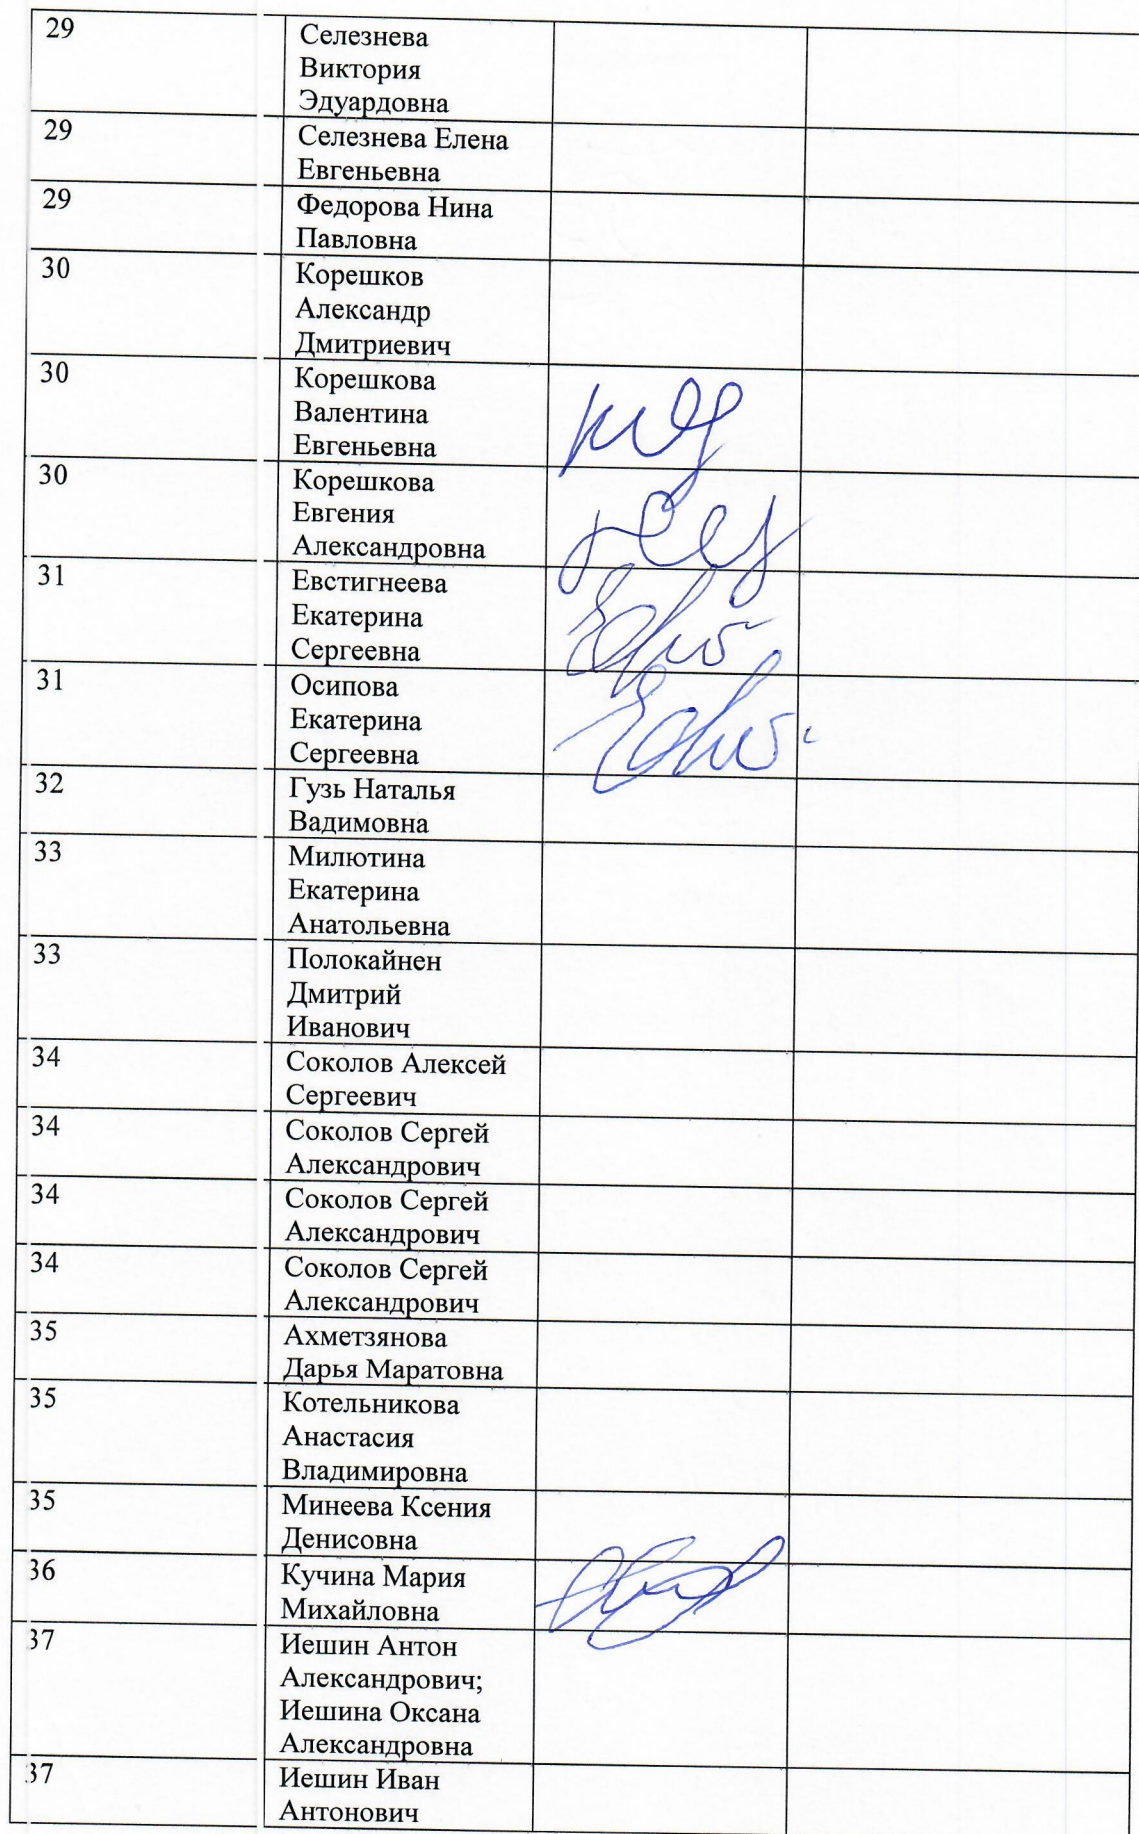 29
Селезнева
Виктория
Эдуардовна
29
Селезнева Елена
Евгеньевна
29
Федорова Нина
Павловна
30
Корешков
Александр
Дмитриевич
30
Корешкова
Валентина
Евгеньевна
30
Корешкова
Евгения
Александровна
31
Евстигнеева
Екатерина
Сергеевна
31
Осипова
Екатерина
Сергеевна
32
Гузь Наталья
Вадимовна
33
Милютина
Екатерина
Анатольевна
33
Полокайнен
Дмитрий
Иванович
34
Соколов Алексей
Сергеевич
34
Соколов Сергей
Александрович
34
Соколов Сергей
Александрович
34
Соколов Сергей
Александрович
35
Ахметзянова
Дарья Маратовна
35
Котельникова
Анастасия
Владимировна
35
Минеева Ксения
Денисовна
36
Кучина Мария
Михайловна
37
Иешин Антон
Александрович;
Иешина Оксана
Александровна
37
Иешин Иван
Антонович